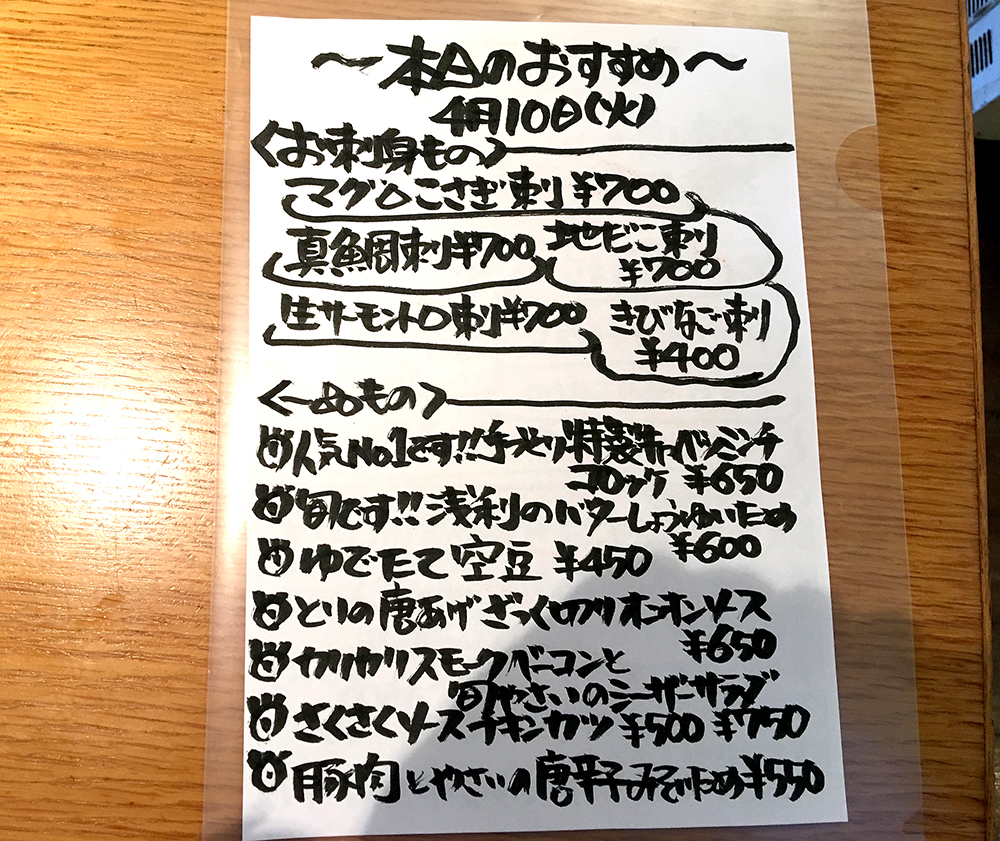 〜本日のおすすめ〜
4月10日(火)
〈お刺身もの〉
マグロこさぎ刺 ¥700
真鯛刺¥700 地だこ刺
¥700
生サーモントロ刺¥700 きびなご刺
¥400
〈一品もの〉
人気No.1です!!手づくり特製キャベツミンチ
コロッケ ¥650
旬です!!浅利のバターしょうゆいため
¥600
ゆでたて空豆 ¥450
とりの唐あげざっく切りオニオンソース
¥650
カリカリスモークベーコンと
旬やさいのシーザーサラダ
さくさくソースチキンカツ ¥500 ¥750
豚肉とやさいの唐辛子みそいため¥550